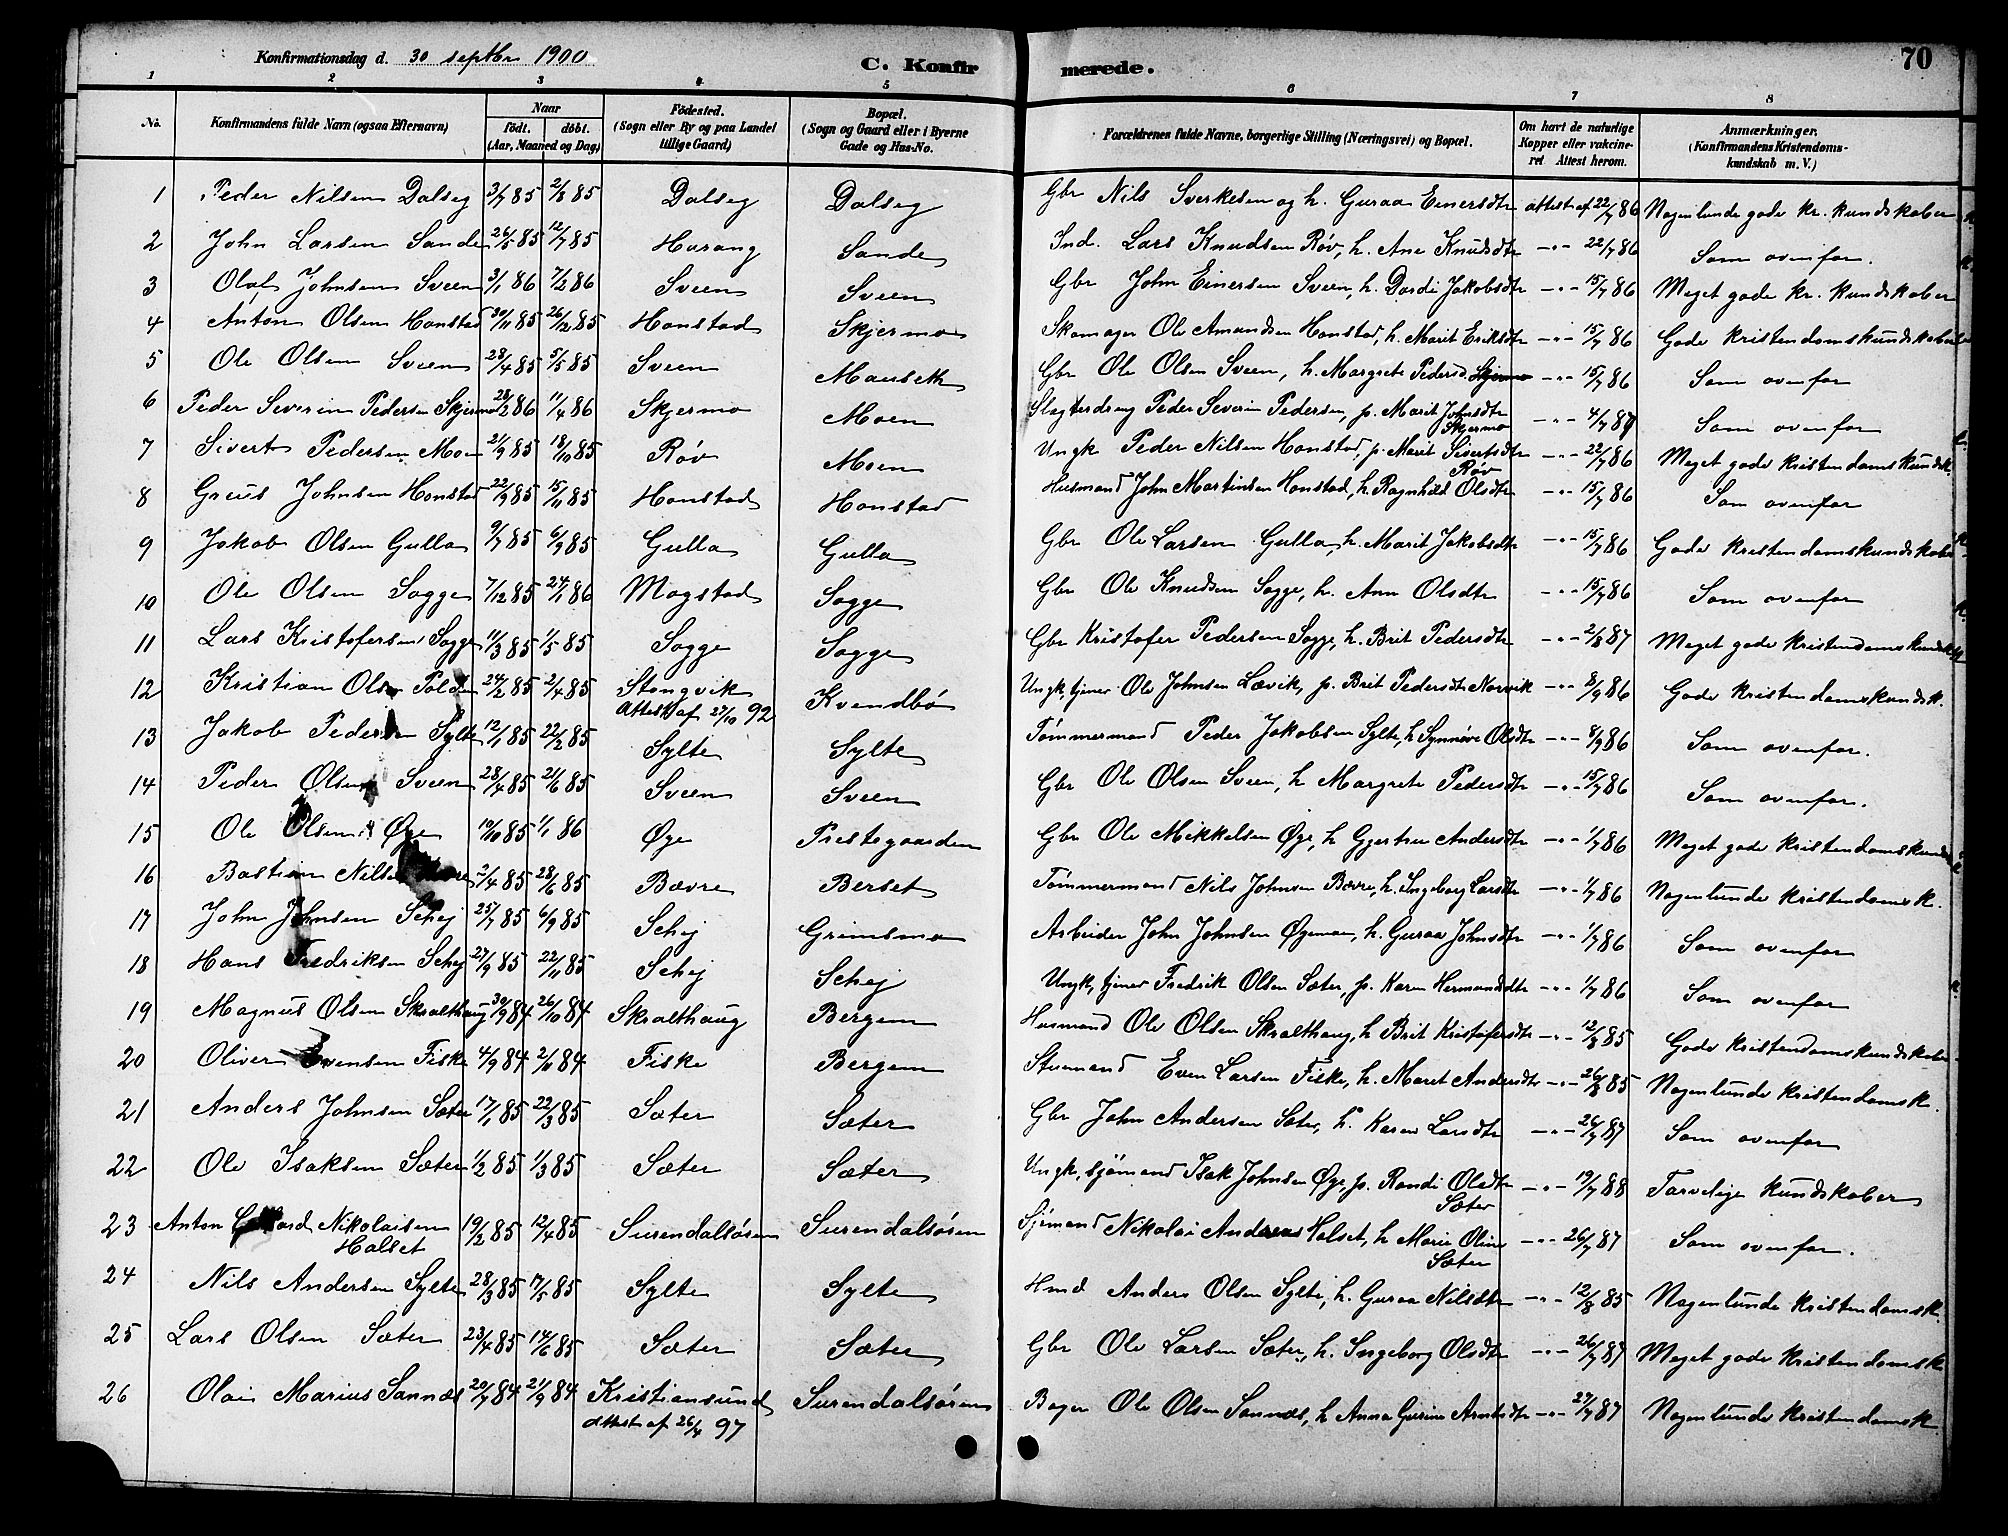 Konfirmationsdag d. 30 septbr 1900 C. Konfirmerede. 70
1 2 3 4 5 6 7 8
No. Konfirmandens fulde Navn (ogsaa Efternavn) Naar födt. döbt. (Aar, Maaned og Dag) Födested. (Sogn eller By og paa Landet tillige Gaard) Bopæl. (Sogn og Gaard eller i Byerne Gade og Hus-No. Forældrenes fulde Navne, borgerlige Stilling (Næringsvei) og Bopæl. Om havt de naturlige Kopper eller vaccineret Attest herom. Anmærkninger. (Konfirmandens Kristendomskundskab m. V.)
1 Peder Nilsen Dalseg 3/7 85 2/8 85 Dalseg Dalseg Gbr Nils Sverkesen og h. Guraa Einersdtr attest af 22/7 86 Nogenlunde gode kr. kundskaber
2 John Larsen Sande 26/5 85 12/7 85 Harang Sande Ind. Lars Knudsen Røv, h. Ane Knudsdtr -"- 22/7 86 Som ovenfor.
3 Olaf Johnsen Sveen 3/1 86 7/2 86 Sveen Sveen Gbr John Einersen Sveen, h. Dordi Jakobsdtr -"- 15/7 86 Meget gode kr. kundskaber
4 Anton Olsen Honstad 30/11 85 26/12 85 Honstad Skjermo Skomager Ole Amundsen Honstad, h. Marit Eriksdtr -"- 15/7 86 Gode kristendomskundskaber
5 Ole Olsen Sveen 28/4 85 5/5 85 Sveen Mauseth Gbr Ole Olsen Sveen, h. Margrete Pedersd. -"- 15/7 86 Som ovenfor
6 Peder Severin Pedersen Skjermo 28/2 86 11/4 86 Skjermo Moen Slagterdreng Peder Severin Pedersen, p. Marit Johnsdtr Skjermo -"- 4/7 89 Som ovenfor
7 Sivert Pedersen Moen 21/9 85 18/10 85 Røv Moen Ungk Peder Nilsen Honstad, p. Marit Sivertsdtr Røv -"- 22/7 86 Meget gode kristendomskundsk.
8 Greus Johnsen Honstad 22/9 85 15/11 85 Honstad Honstad Husmand John Martinsen Honstad, h. Ragnhild Olsdtr -"- 15/7 86 Som ovenfor
9 Jakob Olsen Gulla 9/7 85 6/9 85 Gulla Gulla Gbr Ole Larsen Gulla, h. Marit Jakobsdtr -"- 15/7 86 Gode kristendomskundskaber
10 Ole Olsen Sogge 7/12 85 24/1 86 Mogstad Sogge Gbr Ole Knudsen Sogge, h. Ann Olsdtr -"- 15/7 86 Som ovenfor
11 Lars Kristofersen Sogge 11/3 85 1/5 85 Sogge Sogge Gbr Kristofer Pedersen Sogge, h. Brit Pedersdtr -"- 2/8 87 Meget gode kristendomskundsk
12 Kristian Olsen 24/2 85 2/4 85 Stongvik attest af 27/10 92 Kvendbø Ungk, tjener Ole Johnsen Lævik, p. Brit Pedersdtr Norvik -"- 8/9 86 Gode kristendomskundsk.
13 Jakob Pedersen Sylte 12/1 85 22/2 85 Sylte Sylte Tømmermand Peder Jakobsen Sylte, h. Synnøve Olsdtr -"- 8/9 86 Som ovenfor.
14 Peder Olsen Sveen 28/4 85 21/6 85 Sveen Sveen Gbr Ole Olsen Sveen, h Margrete Pedersdtr -"- 15/7 86 Som ovenfor.
15 Ole Olsen Øye 10/10 85 1/1 86 Øye Prestegaarden Gbr Ole Mikkelsen Øye, h Gjertru Andersdtr -"- 1/7 86 Meget gode kristendomskundsk
16 Bastian Nilsen 2/4 85 28/6 85 Bævre Berset Tømmermand Nils Johnsen Bævre, h. Ingeborg Larsdtr -"- 1/7 86 Nogenlunde kristendomsk.
17 John Johnsen Schej 25/7 85 6/9 85 Schej Grimsmo Arbeider John Johnsen Øyemo, h. Guraa Johnsdtr -"- 1/7 86 Som ovenfor
18 Hans Fredriksen Schej 27/9 85 22/11 85 Schej Schej Ungk, tjener Fredrik Olsen Sæter, p. Karen Hermansdtr -"- 1/7 86 Som ovenfor
19 Magnus Olsen Skralthaug 30/9 84 26/10 84 Skralthaug Bergem Husmand Ole Olsen Skralthaug, h Brit Kristofersdtr -"- 12/8 85 Gode kristendomskundskaber
20 Oliver Evensen Fiske 4/9 84 2/11 84 Fiske Bergem Sturmand Even Larsen Fiske, h. Marit Andersdtr -"- 26/8 85 Nogenlunde kristendomsk.
21 Anders Johnsen Sæter 17/1 85 22/3 85 Sæter Sæter Gbr John Andersen Sæter, h. Karen Larsdtr -"- 26/7 87 Som ovenfor
22 Ole Isaksen Sæter 1/2 85 1/3 85 Sæter Sæter Ungk, sjømand Isak Johnsen Øye, p. Randi Olsdtr Sæter -"- 19/7 88 Tarvelige kundskaber
23 Anton Nikolaisen Halset 19/2 85 12/4 85 Surendalsøren Surendalsøren Sjømand Nikolai Andreas Halset, h Marie Oline Sæter -"- 26/7 87 Som ovenfor.
24 Nils Andersen Sylte 28/3 85 17/5 85 Sylte Sylte Hmd Anders Olsen Sylte, h. Guraa Nilsdtr -"- 12/8 85 Nogenlunde kristendomsk.
25 Lars Olsen Sæter 23/4 85 14/6 85 Sæter Sæter Gbr Ole Larsen Sæter, h. Ingeborg Olsdtr -"- 26/7 87 Meget gode kristendomsk
26 Olai Marius Sannæs 20/7 84 21/9 84 Kristiansund attest af 26/4 97 Surendalsøren Bager Ole Olsen Sannæs, h Anna Gurine Arntsdtr -"- 27/7 87 Nogenlunde kristendomsk